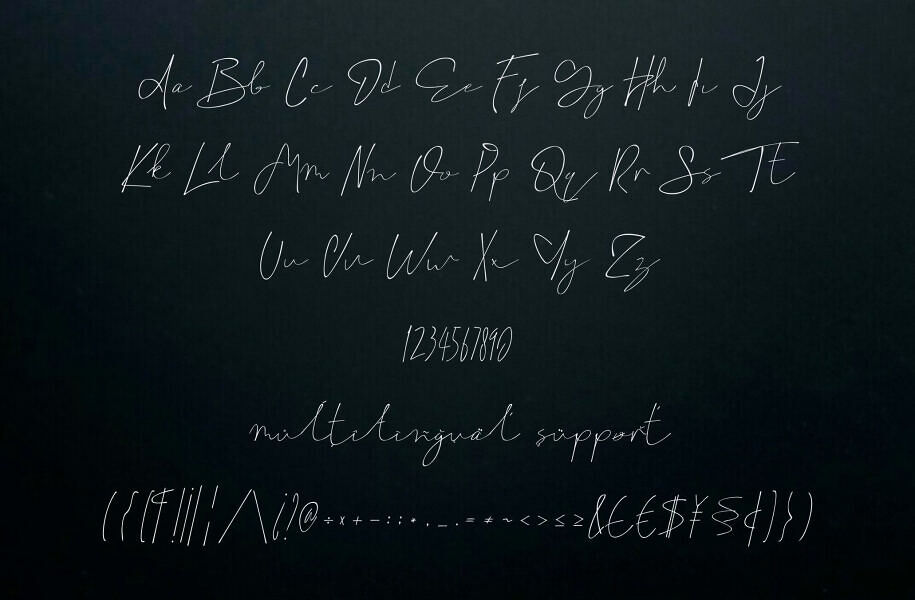 Aa Bb Cc Dd Ee Ff Gg Hh Ii Jj
Kk Ll Mm Nn Oo Pp Qq Rr Ss Tt
Uu Vv Ww Xx Yy Zz
1234567890
mùltïlìñgüäl süppört
( { [ ¶ ! | ¦ / \ ¿ ? @ ÷ × + − : ; * , _ . = ≠ ~ < > ≤ ≥ & € $ ¥ § ] } )